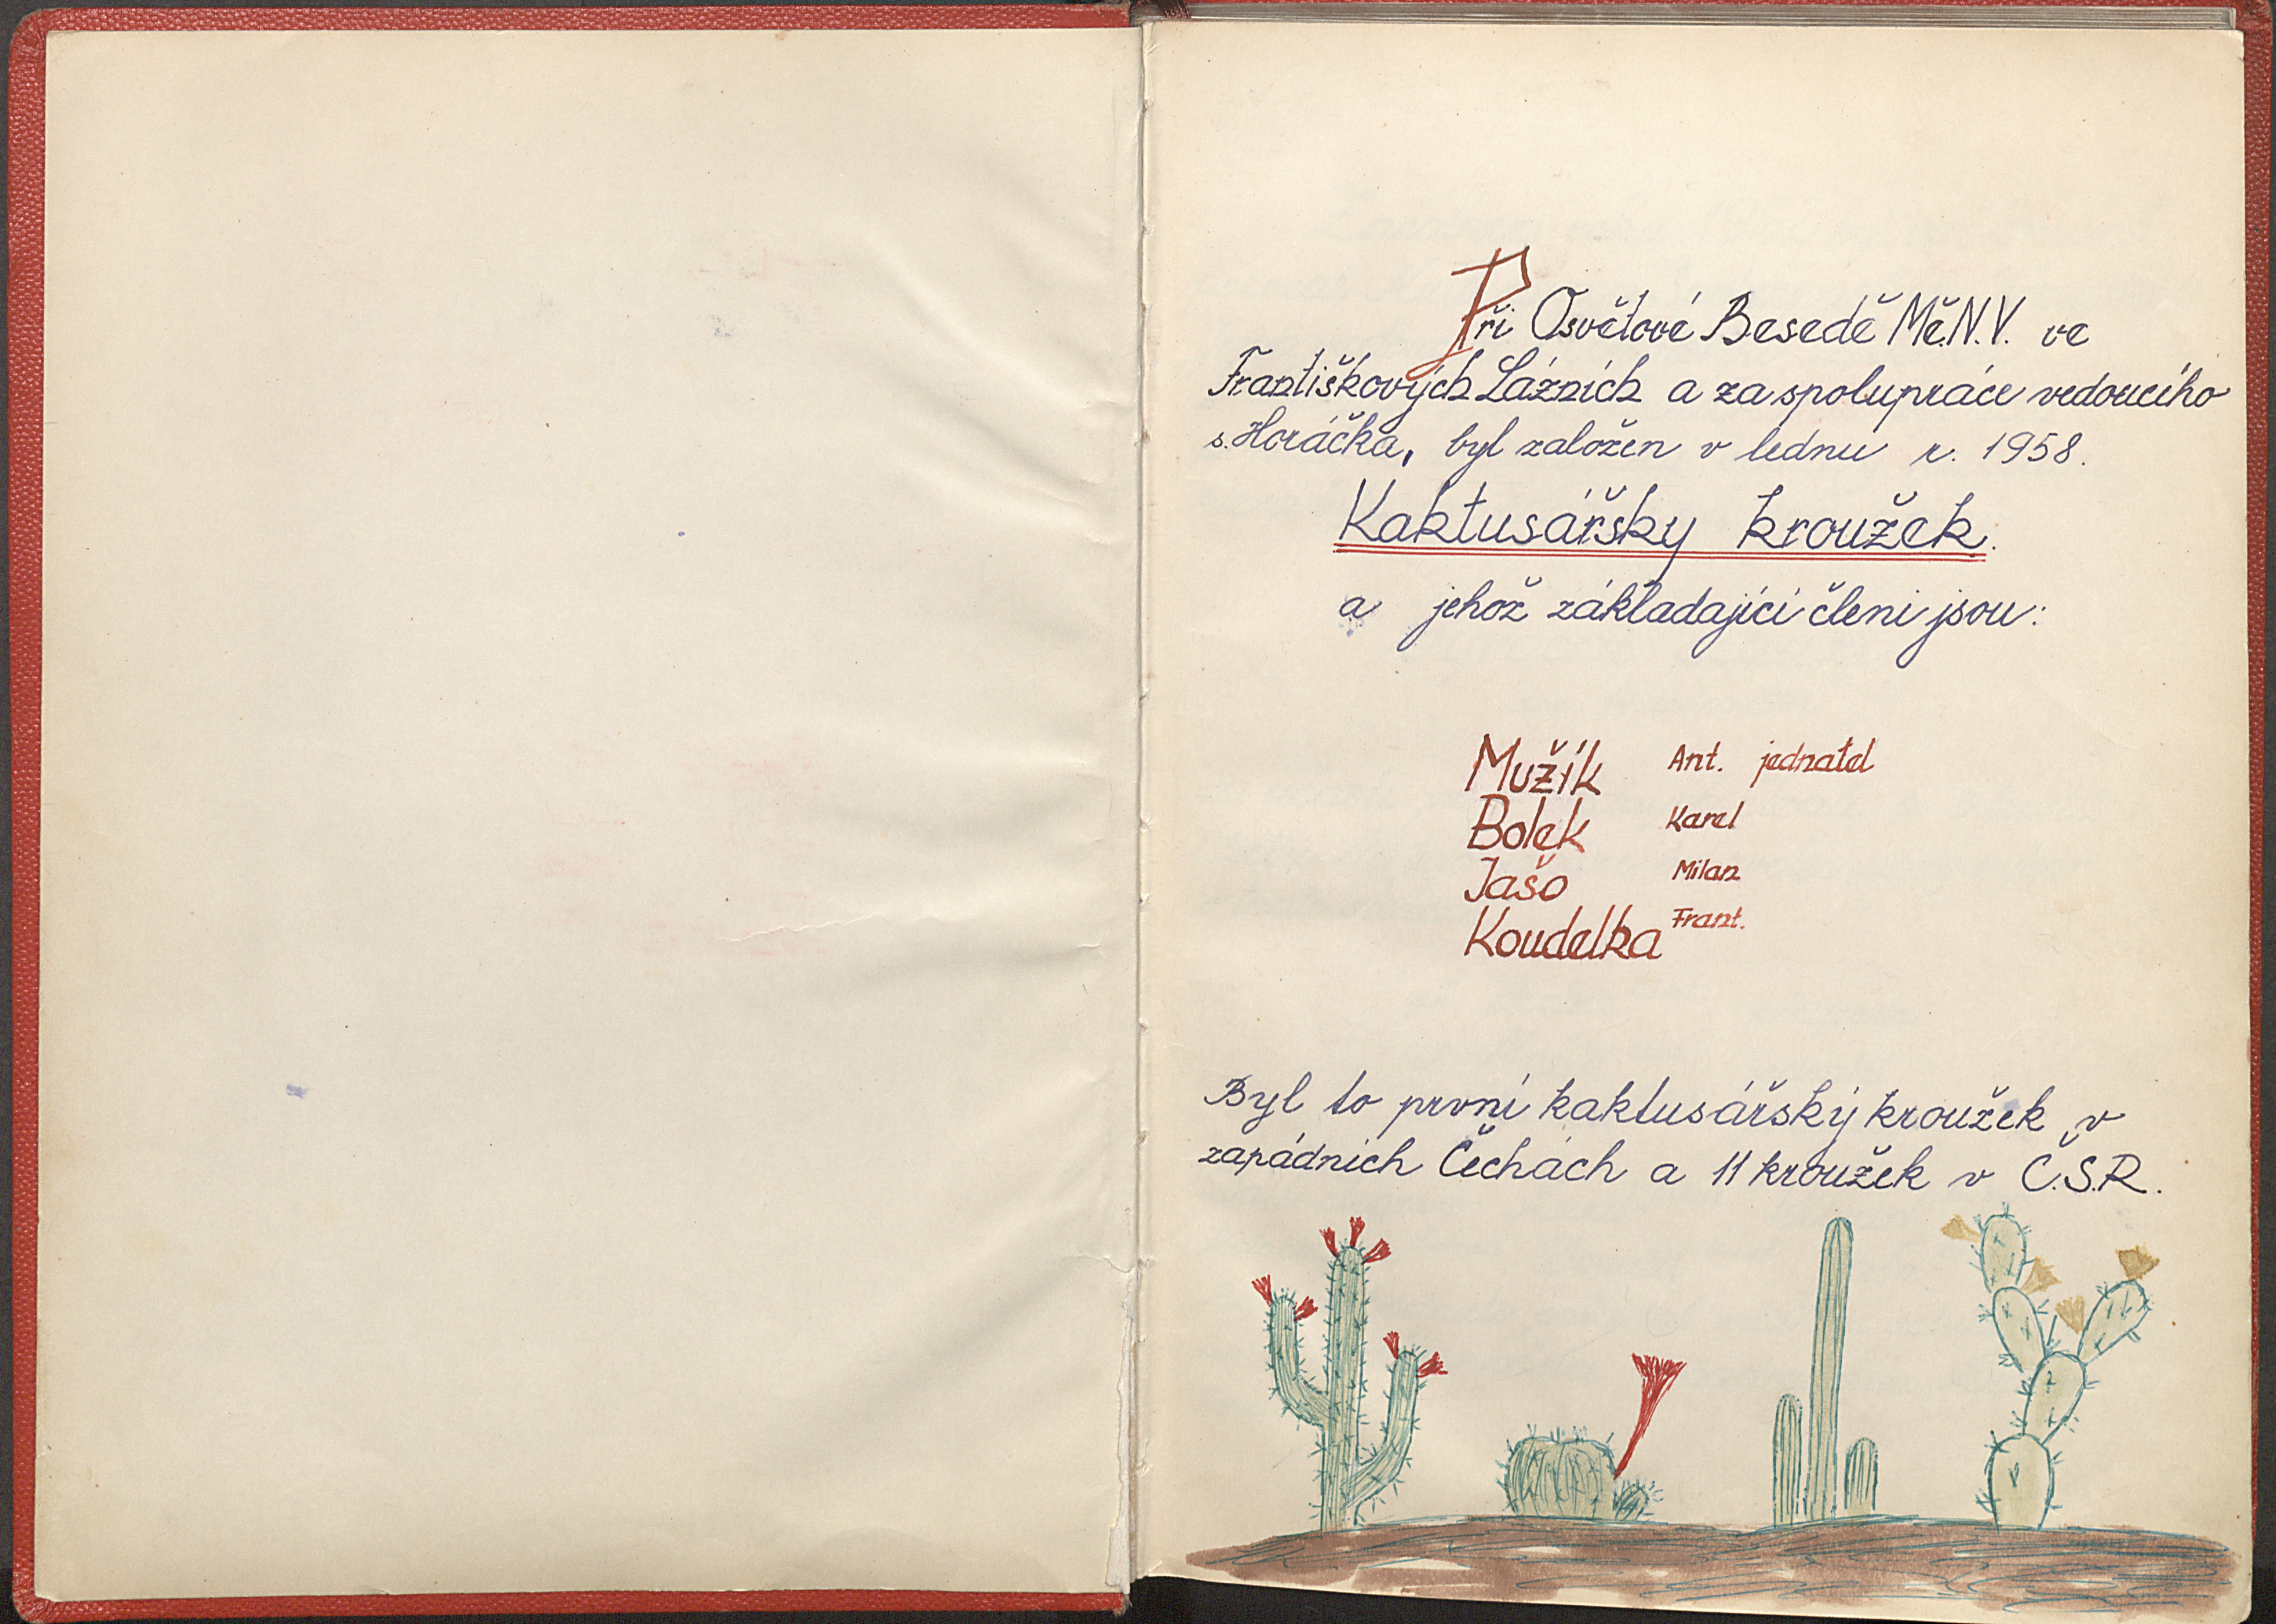 Při Osvětové Besedě Mě.N.V. ve
Františkových Lázních a za spolupráce vedoucího
s. Horáčka, byl založen v lednu r. 1958.
Kaktusářsky kroužek.
a jehož zákládající členi jsou:
Mužík Ant. jednatel
Bolek Karel
Jašo Milan
Koudelka Frant.
Byl to první kaktusářský kroužek v
západních Čechách a 11 kroužek v Č.S.R.